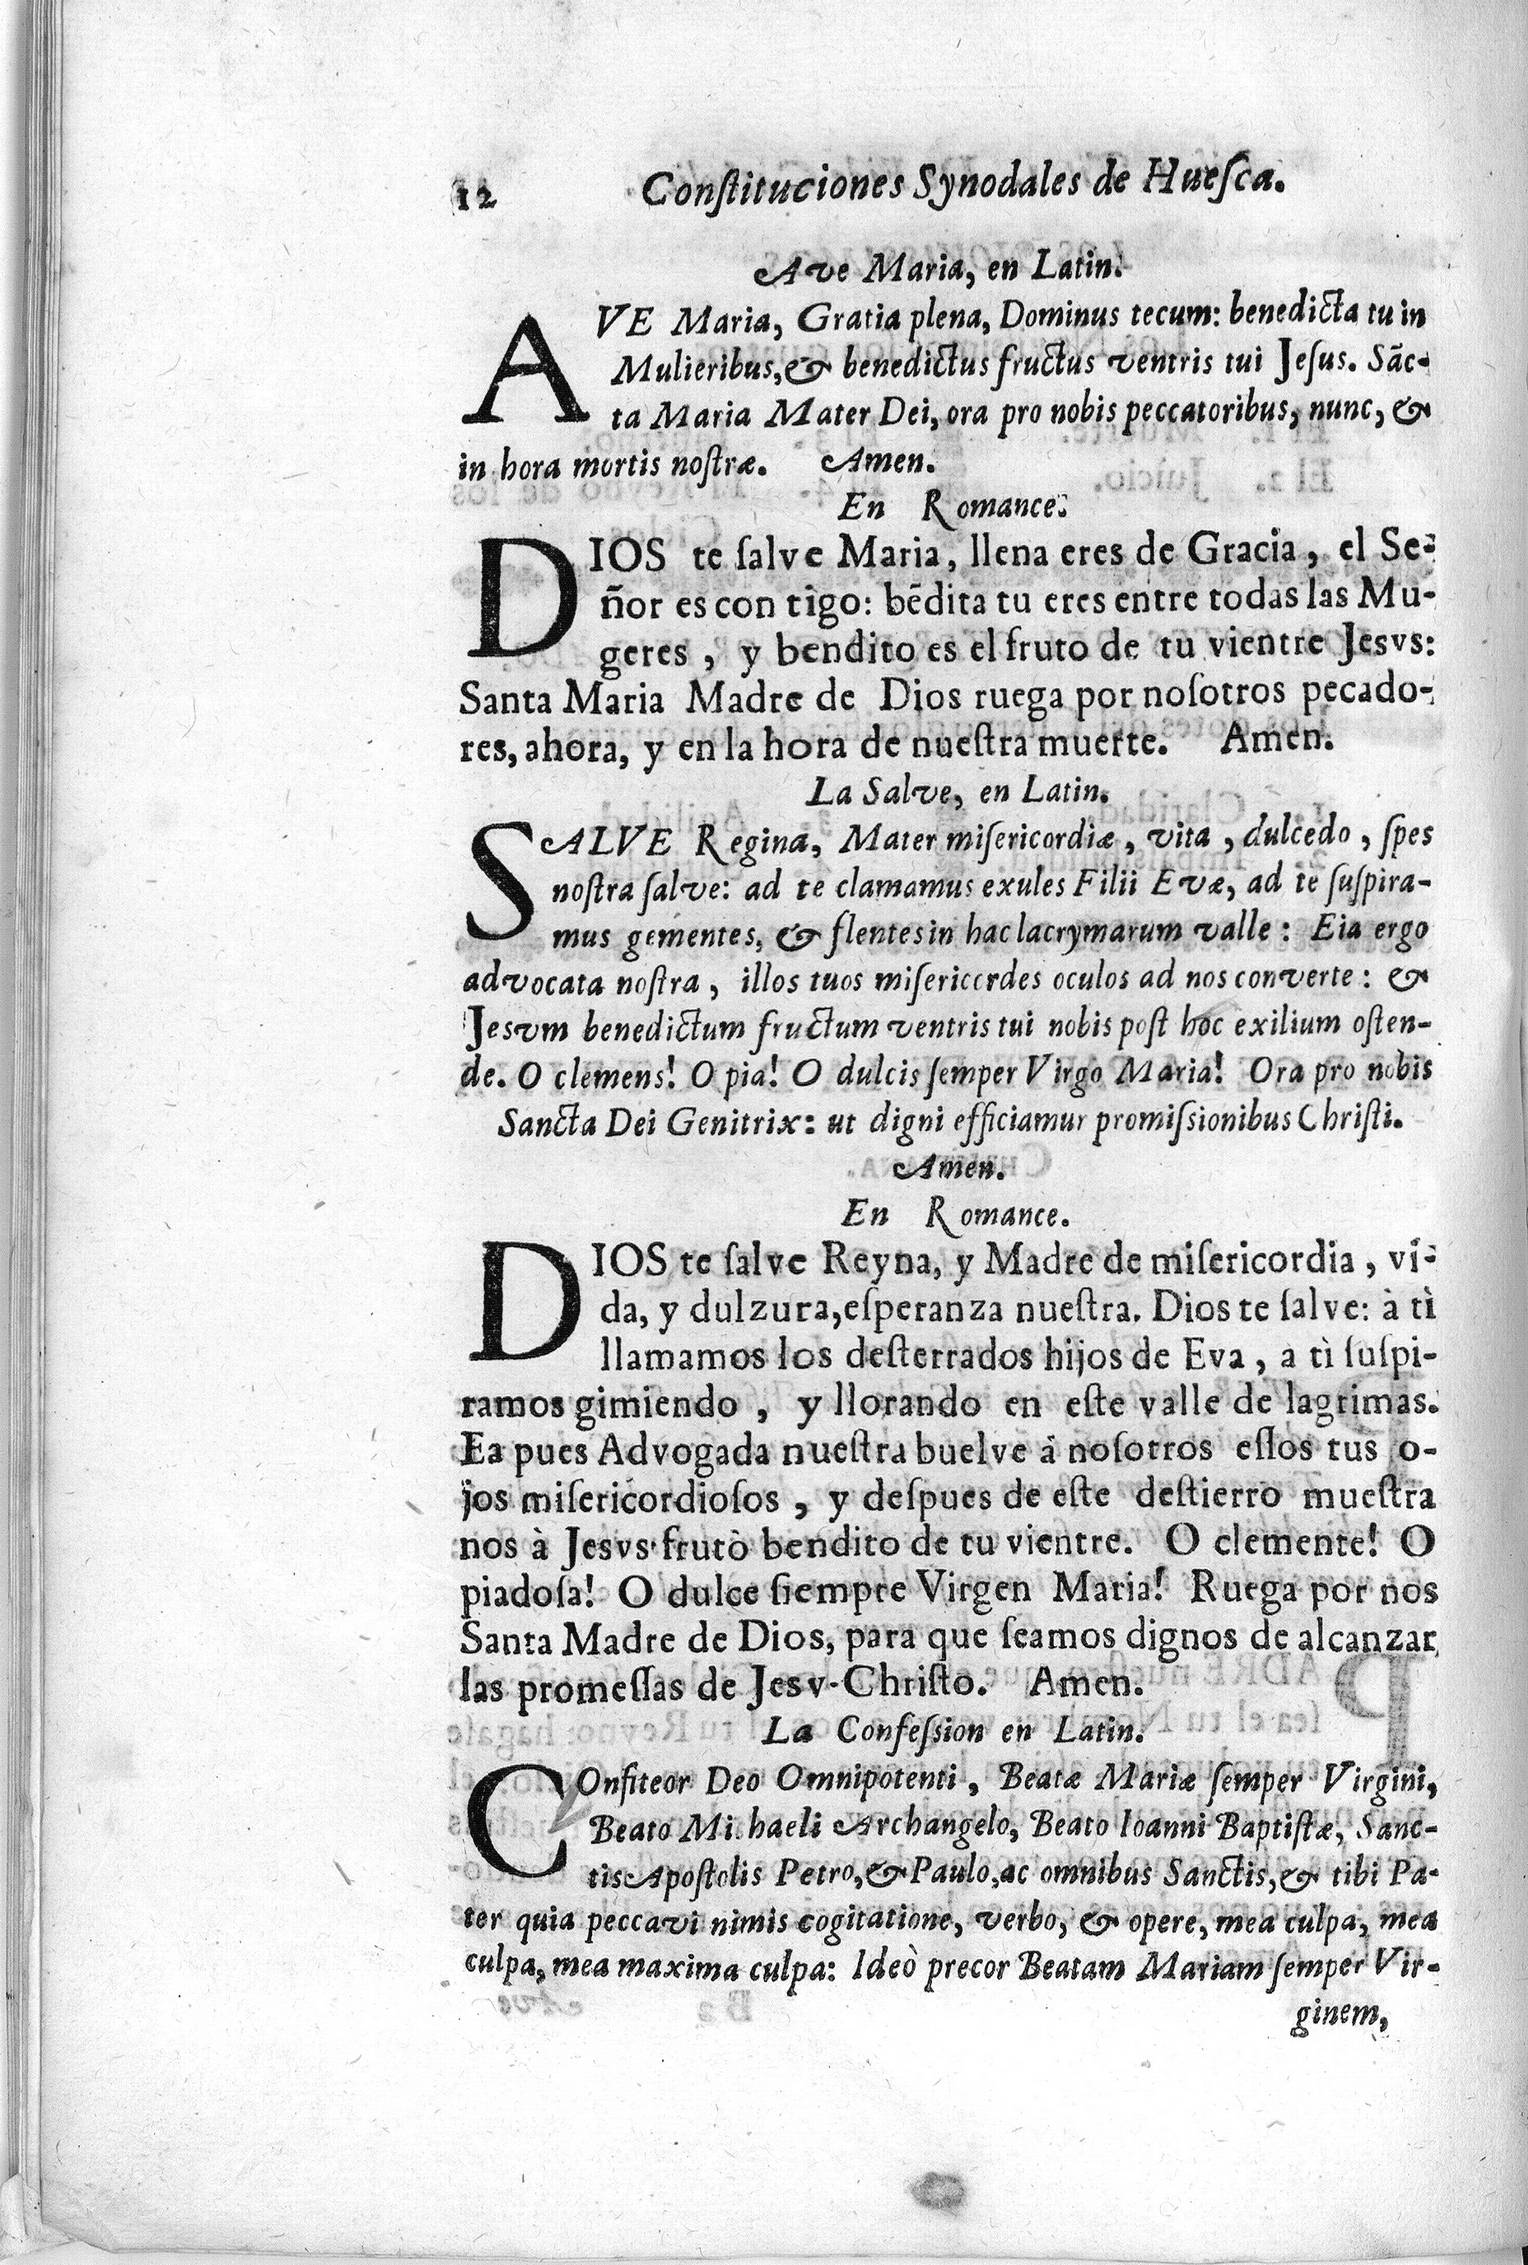 12 Conſtituciones Synodales de Hueſca.
Ave Maria, en Latin.
AVE Maria, Gratia plena, Dominus tecum: benedicta tu in
Mulieribus, & benedictus fructus ventris tui Jeſus. Sãc-
ta Maria Mater Dei, ora pro nobis peccatoribus, nunc, &
in hora mortis noſtræ. Amen.
En Romance.
DIOS te ſalve Maria, llena eres de Gracia, el Se-
ñor es con tigo: bẽdita tu eres entre todas las Mu-
geres, y bendito es el fruto de tu vientre Jesvs:
Santa Maria Madre de Dios ruega por noſotros pecado-
res, ahora, y en la hora de nueſtra muerte. Amen.
La Salve, en Latin.
SALVE Regina, Mater miſericordiæ, vita, dulcedo, ſpes
noſtra ſalve: ad te clamamus exules Filii Evæ, ad te ſuſpira-
mus gementes, & flentes in hac lacrymarum valle: Eia ergo
advocata noſtra, illos tuos miſericordes oculos ad nos converte: &
Jesvm benedictum fructum ventris tui nobis poſt hoc exilium oſten-
de. O clemens! O pia! O dulcis ſemper Virgo Maria! Ora pro nobis
Sancta Dei Genitrix: ut digni efficiamur promiſsionibus Chriſti.
Amen.
En Romance.
DIOS te ſalve Reyna, y Madre de miſericordia, vi-
da, y dulzura, eſperanza nueſtra. Dios te ſalve: à tì
llamamos los deſterrados hijos de Eva, a tì ſuſpi-
ramos gimiendo, y llorando en eſte valle de lagrimas.
Ea pues Advogada nueſtra buelve á noſotros eſſos tus o-
jos miſericordioſos, y deſpues de eſte deſtierro mueſtra
nos à Jesvs frutò bendito de tu vientre. O clemente! O
piadoſa! O dulce ſiempre Virgen Maria! Ruega por nos
Santa Madre de Dios, para que ſeamos dignos de alcanzar
las promeſſas de Jesv-Chriſto. Amen.
La Confeſsion en Latin.
COnfiteor Deo Omnipotenti, Beatæ Mariæ ſemper Virgini,
Beato Michaeli Archangelo, Beato Ioanni Baptiſtæ, Sanc-
tis Apoſtolis Petro, & Paulo, ac omnibus Sanctis, & tibi Pa-
ter quia peccavi nimis cogitatione, verbo, & opere, mea culpa, mea
culpa, mea maxima culpa: Ideò precor Beatam Mariam ſemper Vir-
ginem,